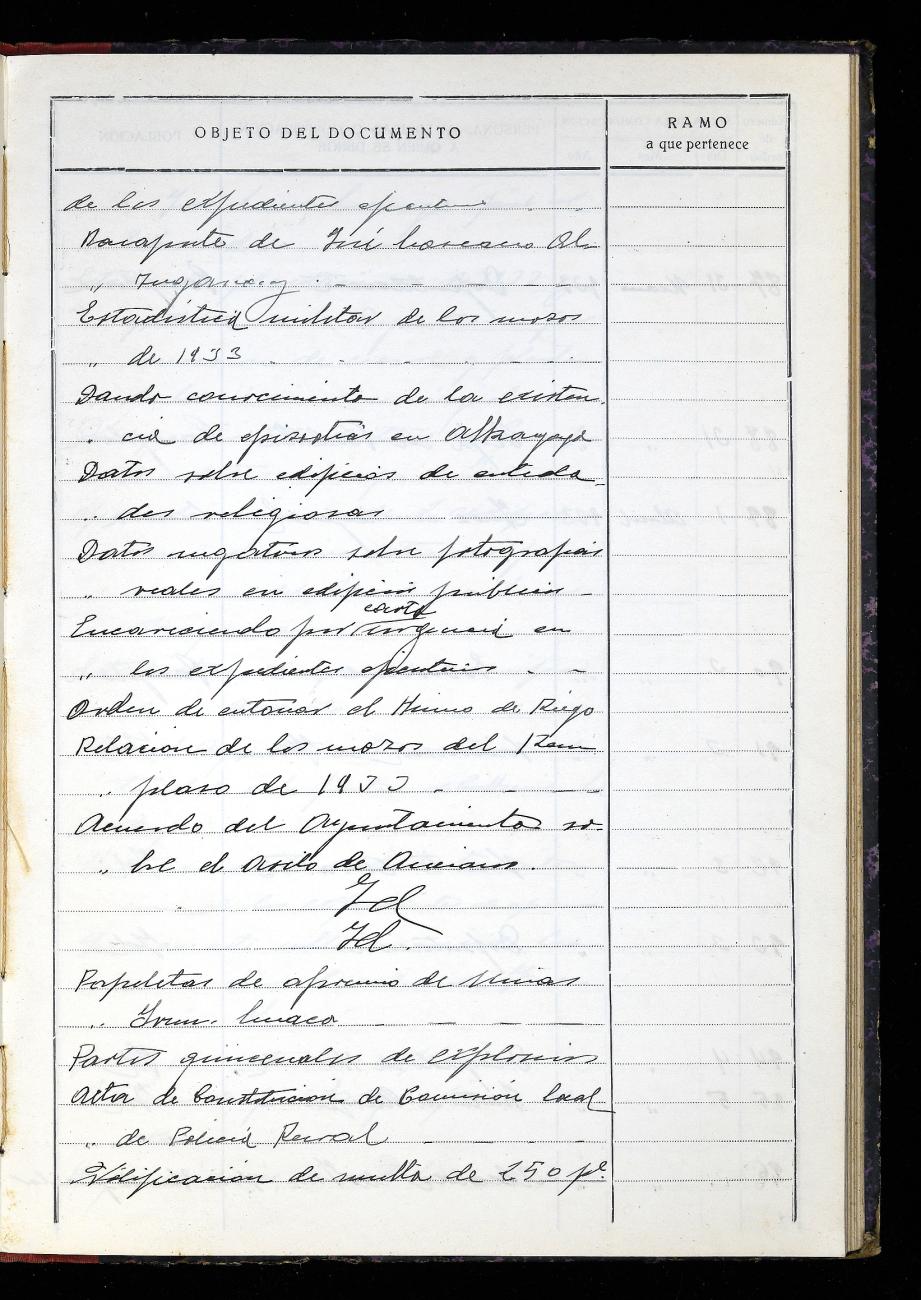 OBJETO DEL DOCUMENTO
RAMO
a que pertenece
de los expedientes
de José
"
Estadística militar de los mozos
" de 1933
Dando conocimiento de la existen
" cia de epizootias en
Datos sobre edificios de entida
" des religiosas
Datos negativos sobre fotografias
" reales en edificios públicos
carta
Encareciendo por urgencia en
" los expedientes
Orden de entonar el Himno de Riego
Relacion de los mozos del Reem
" plaso de 1933
Acuerdo del Ayuntamiento so-
" bre el Asilo de Ancianos.
Id
Id.
Papeletas de apremio de Minas
" Irun.
Partes quincenales de explosivos
Acta de Constitucion de Comisión local
" de Policia Rural
Notificacion de multa de 250 p.